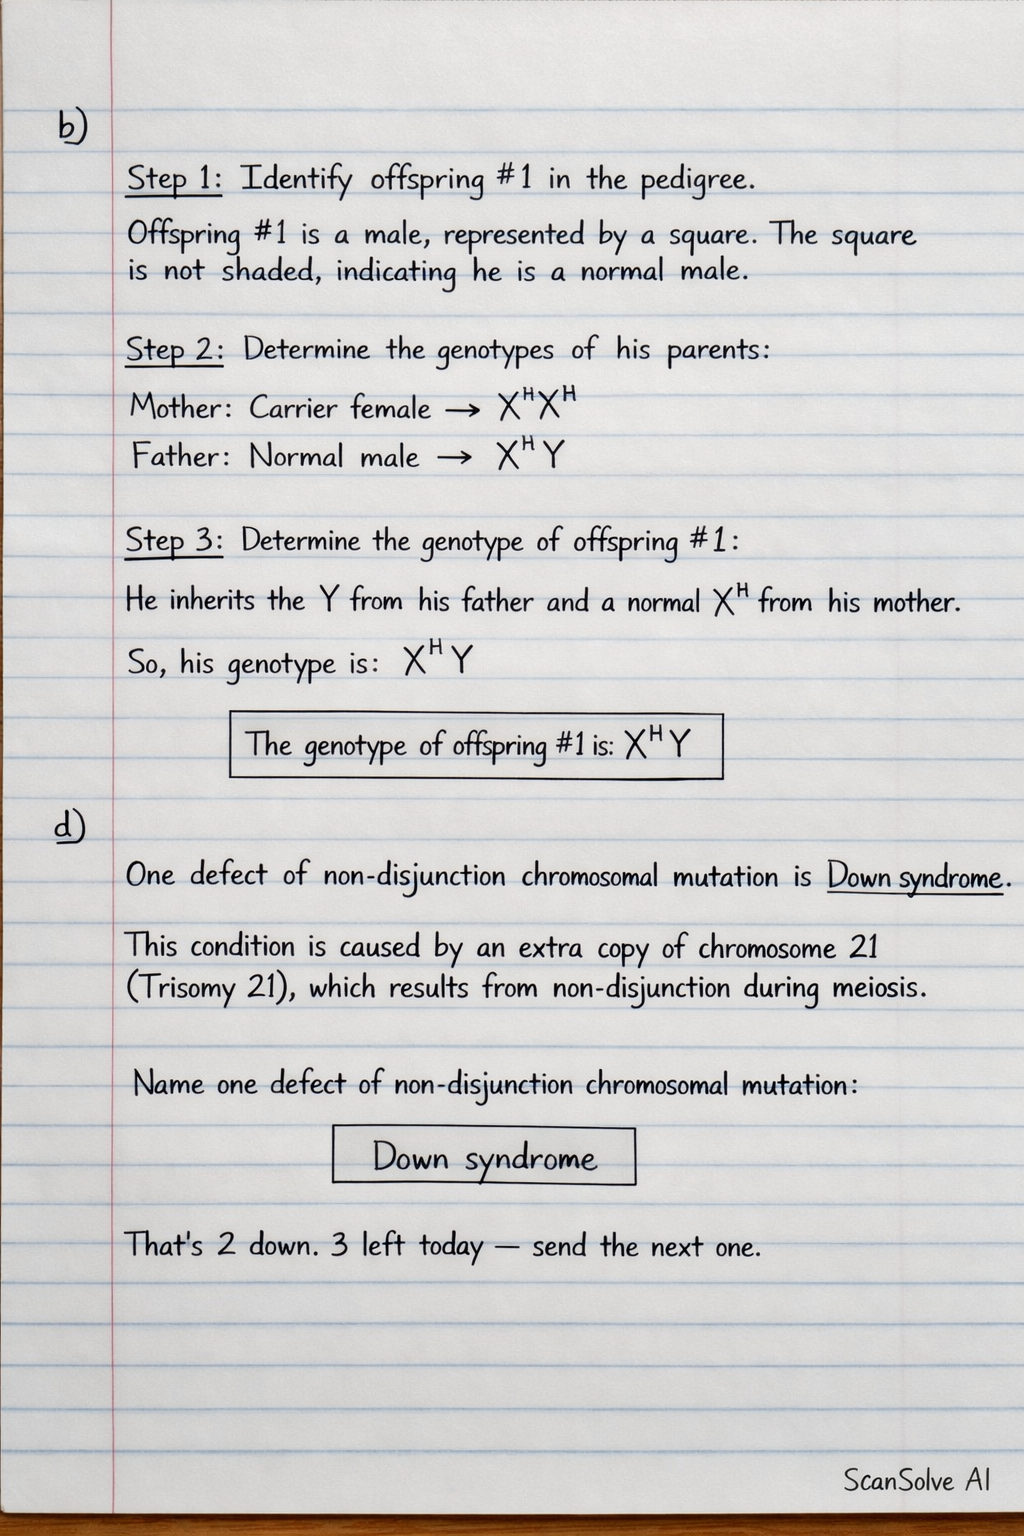 b)
Step 1: Identify offspring #1 in the pedigree.
Offspring #1 is a male, represented by a square. The square
is not shaded, indicating he is a normal male.
Step 2: Determine the genotypes of his parents:
Mother: Carrier female → XᴴXᴴ
Father: Normal male → XᴴY
Step 3: Determine the genotype of offspring #1:
He inherits the Y from his father and a normal Xᴴ from his mother.
So, his genotype is: XᴴY
The genotype of offspring #1 is: XᴴY
d)
One defect of non-disjunction chromosomal mutation is Down syndrome.
This condition is caused by an extra copy of chromosome 21
(Trisomy 21), which results from non-disjunction during meiosis.
Name one defect of non-disjunction chromosomal mutation:
Down syndrome
That's 2 down. 3 left today — send the next one.
ScanSolve AI